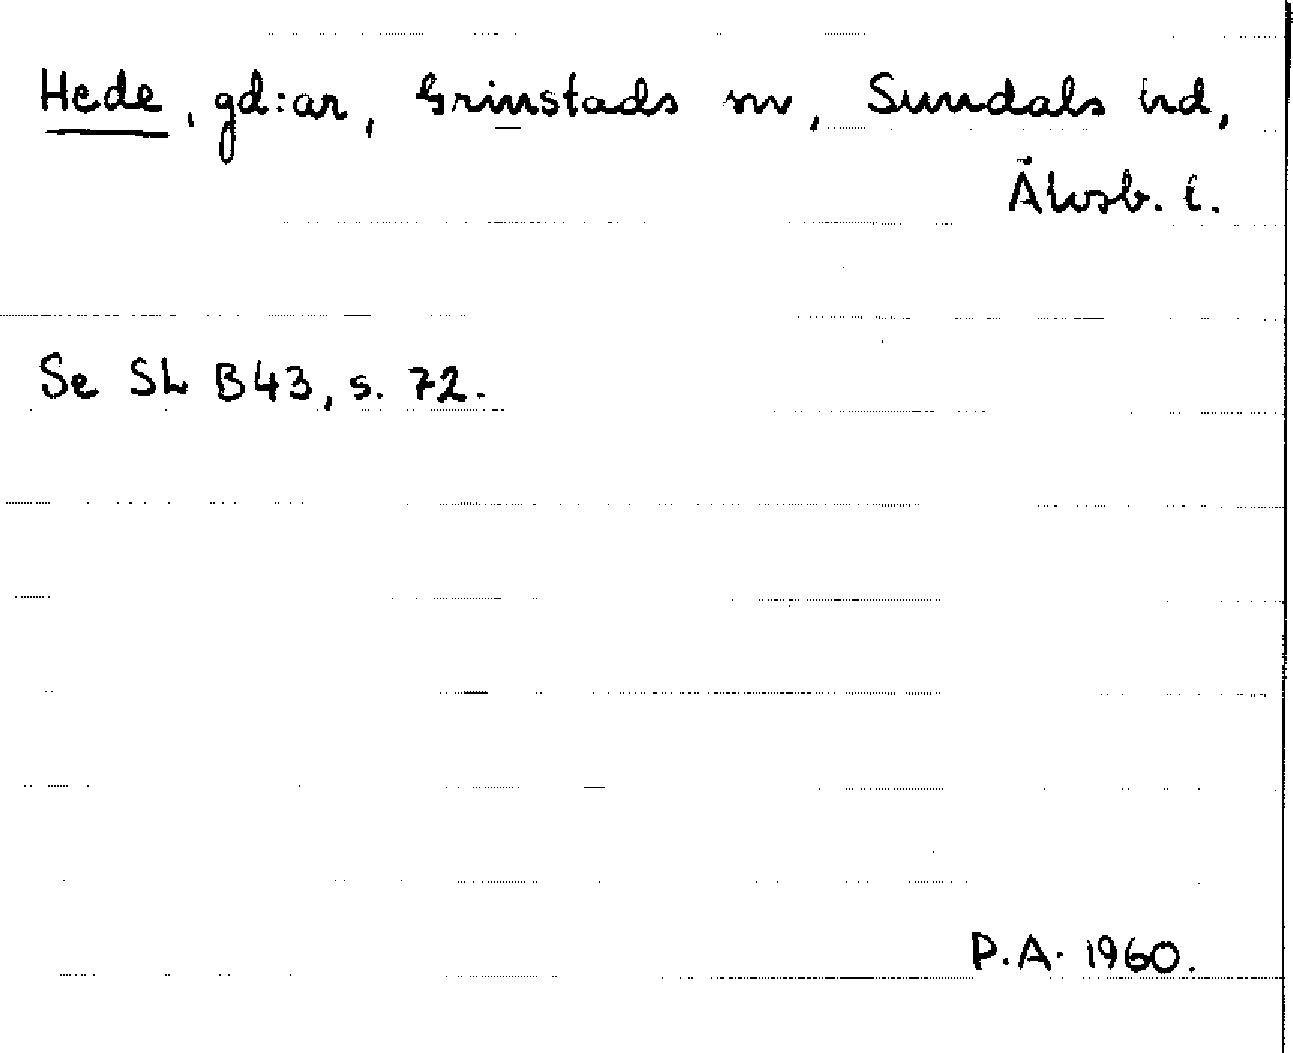 Hede, gd:ar, Grinstads sn, Sundals hd,
Älvsb. l.
Se Sh B43, s. 72.
P.A. 1960.